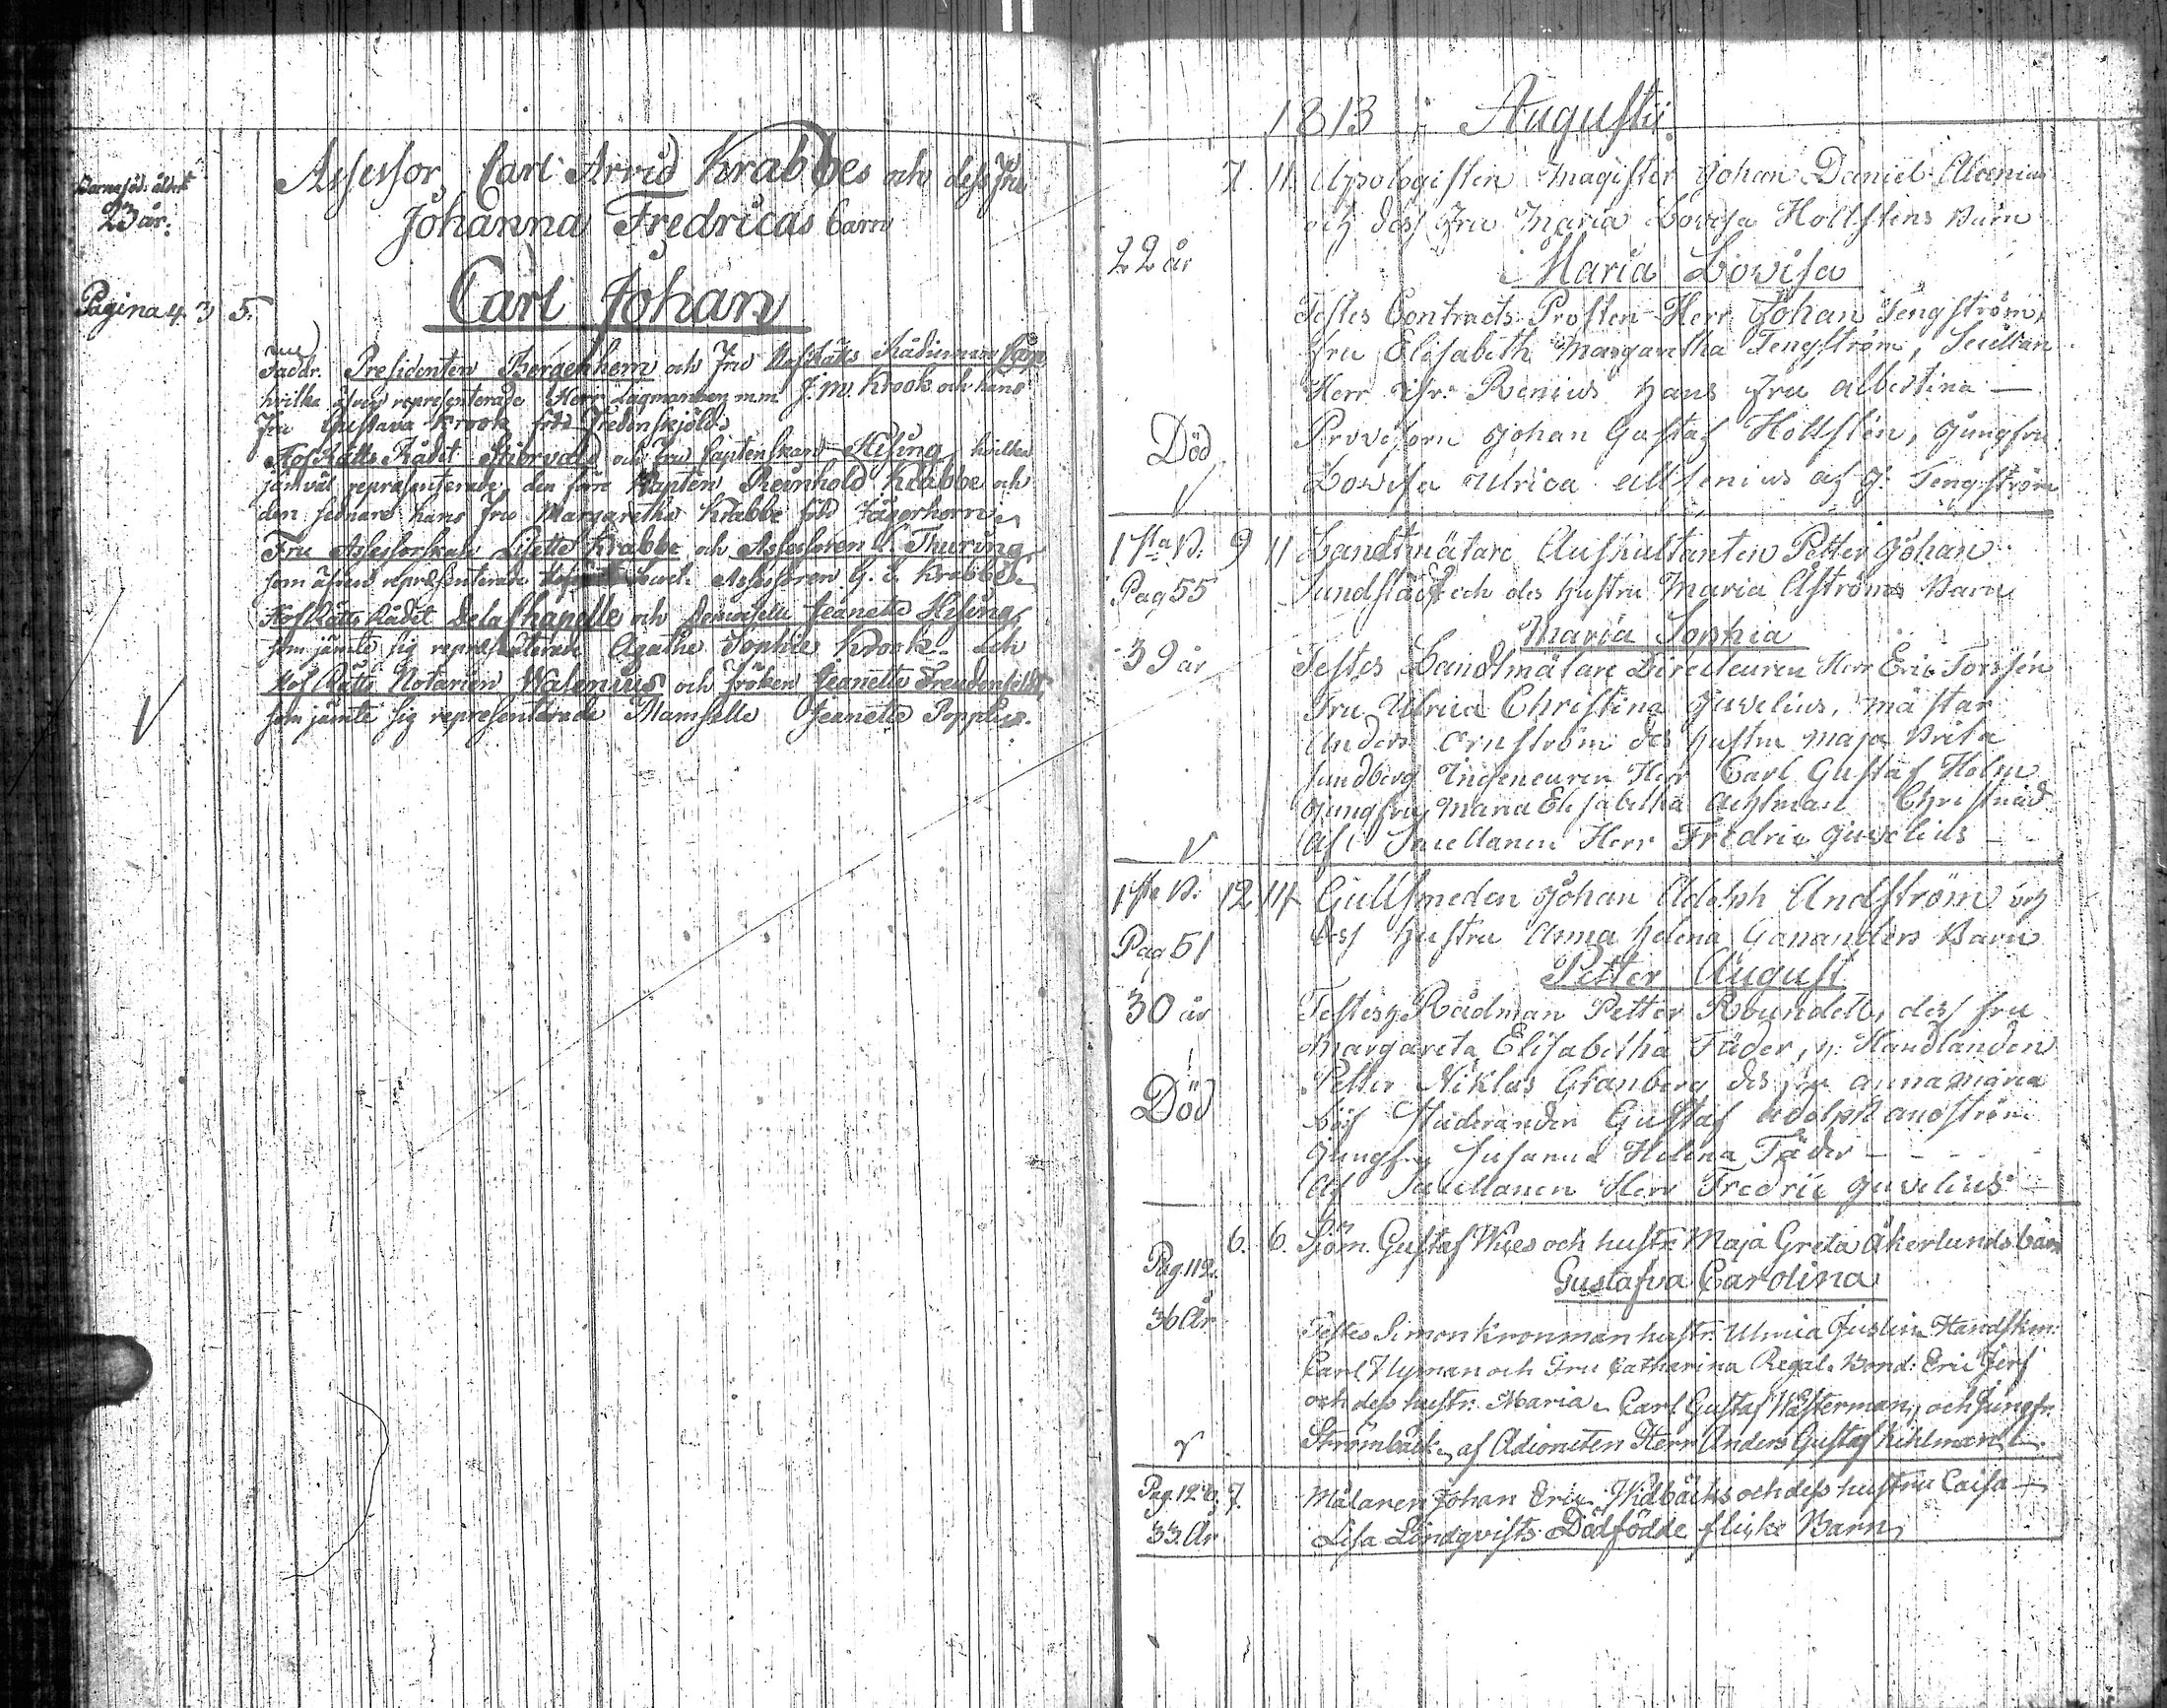 Barnaföd. ålder
23 år.
Assessor Carl Arvid Krabbes och dess Fru
Johanna Fredricas barn
Pagina 4. 3 5. Carl Johan
Faddr. Presidenten Bergenhem och Fru HofRätts Rådinnan
hvilka äfven representerade Herr Lagmannen m.m J. M. Krook och hans
Fru Gustava Krook född Fredenskjöld
HofRätts Rådet Stjervald och Fru Captenskan Hising hvilka
jämväl representerade, den förre Kapten Reinhold Krabbe och
den sednare hans Fru Margaretha Krabbe född Jägerhorn
Fru Assessorskan Lisette Krabbe och Assessoren C. Thuring
som äfven representerade Secret. Assessoren G. E. Krabbe
HofRätts Rådet De la Chapelle och Demoiselle Jeanette Hising
som jämte sig representerade Agathe Sophie Krook och
Hof Rätts Notarien Walenius och Fröken Jeanette Freudenfeldt
som jämte sig representerade Mamselle Jeanette Popplius.
V
1813 Augusti
7. 11. Apologisten Magister Johan Daniel Alcenius
och dess Fru Maria Lovisa Hollstens Barn
22 år
Maria Lovisa
Testes Contracts Prosten Herr Johan Tengström,
Fru Elisabeth Margaretha Tengström,
Herr Renius hans Fru Albertina —
Provisorn Johan Gustaf Hollsten, Jungfru
Död
Lovisa Ulrica Alcenius af J. Tengström
V
1sta B. 9 11 Landtmätare Auskultanten Petter Johan
Pag 55 Sundstedt och des hustru Maria Åströms Barn
Maria Sophia
39 år Testes Landtmätare Directeuren Herr Eric Forssén
Fru Ulrica Christina Juvelius, mästar
Anders Ernström des hustru Maja Brita
Sundberg Ingeneuren Herr Carl Gustaf Holm
Jungfru Maria Elisabetha Ahlman Christnad
V Af Sacellanen Herr Fredric Juvelius —
1sta B. 12 14 Gullsmeden Johan Adolph Andström och
Pag 51 dess hustru Anna Helena Gananders Barn
Petter August
30 år Testes Rådman Petter Roundell, dess fru
Margareta Elisabetha Fäder, Handlanden
Petter Niklas Granberg des fru Anna Maria
Död
Studeranden Gustaf Adolph Andström
Jungfru Susanna Helena Fäder —
Af Sacellanen Herr Fredric Juvelius —
6. 6. Sjöm. Gustaf Wies och hustr. Maja Greta Åkerlunds barn
Pag. 112. Gustafva Carolina
36 År Testes Simon Kronman hustr. Ulrica Juslin. Handskm:
Carl Nyman och Fru Catharina Regal. Bond. Eric Jerf
och dess hustr: Maria. Carl Gustaf Wästerman, och Jungfr.
V Strömbäck. af Adioncten Herr Anders Gustaf Kihlman.
Pag. 126. 7. Målaren Johan Eric Widbäcks och dess hustru Caisa
33. År Lisa Lindqvists Dödfödde flicke Barn